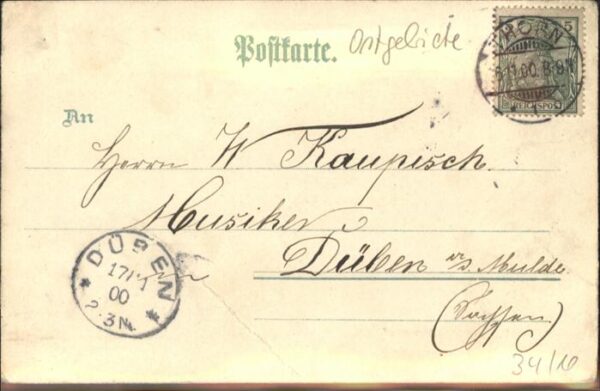 Postkarte.
Ostgebiete
THORN
5
00. 8-9N
REICHSPOST
An
Herrn W Kaupisch
Musiker
Düben a/d Mulde
(Sachsen)
DÜBEN
17/11
00
2-3N.
34/16